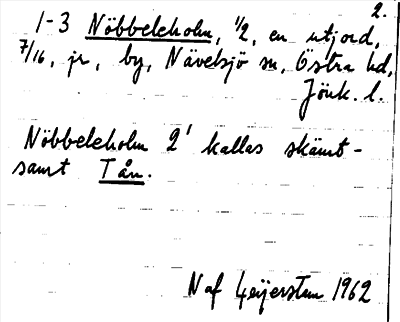 2.
1-3 Nöbbeleholm, 1/2, en utjord,
7/16, jr, by, Nävelsjö sn, Östra hd,
Jönk. l.
Nöbbeleholm 2¹ kallas skämt-
samt Tån.
N af Geijerstam 1962